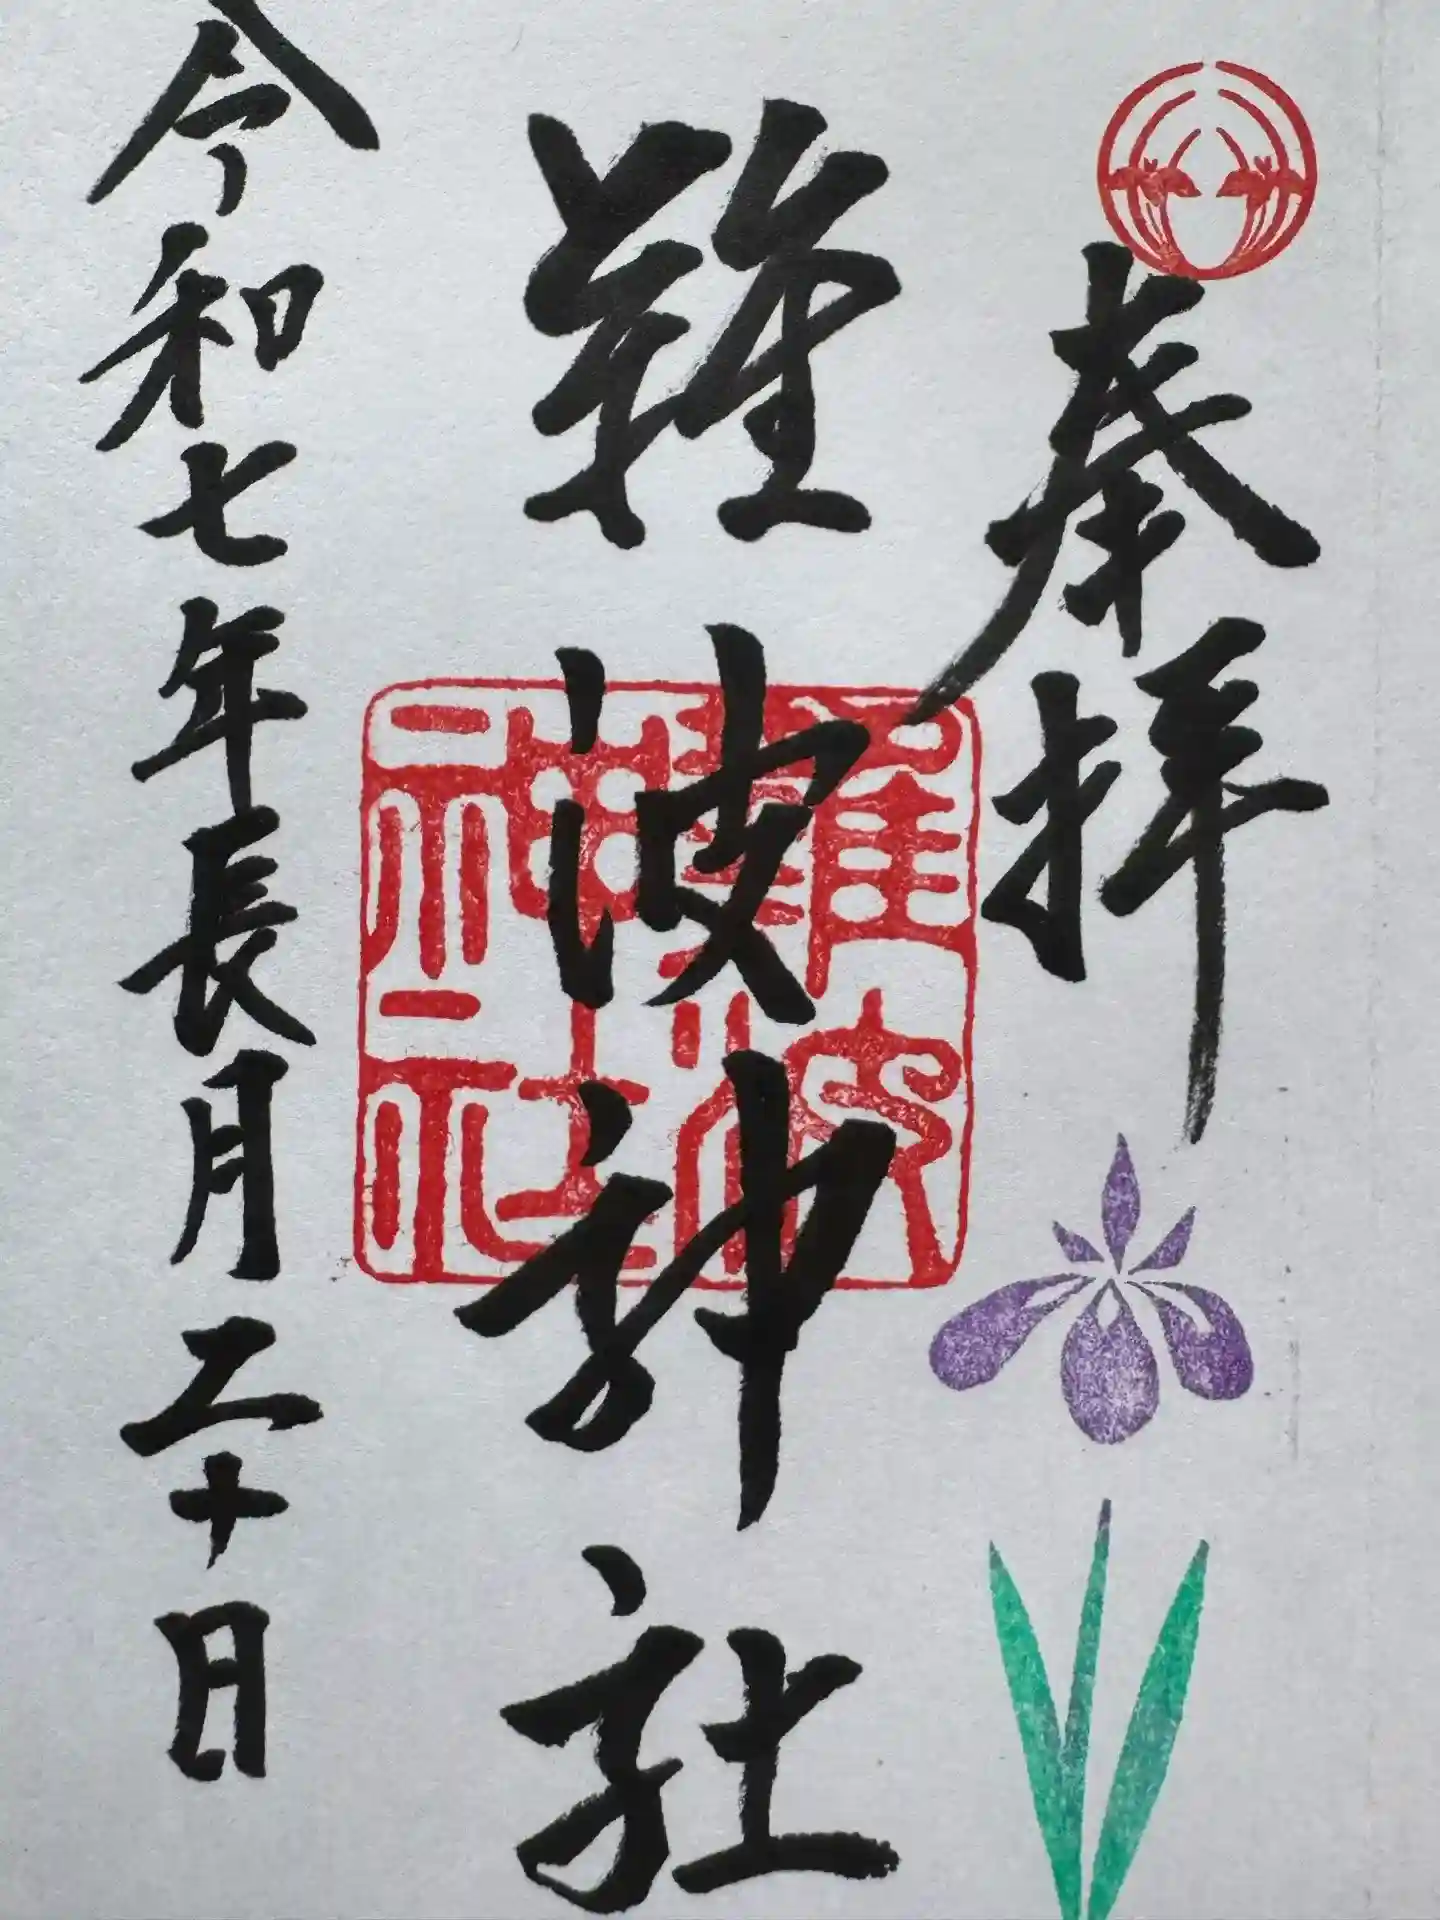 奉拝
難波神社
難波神社
令和七年長月二十日